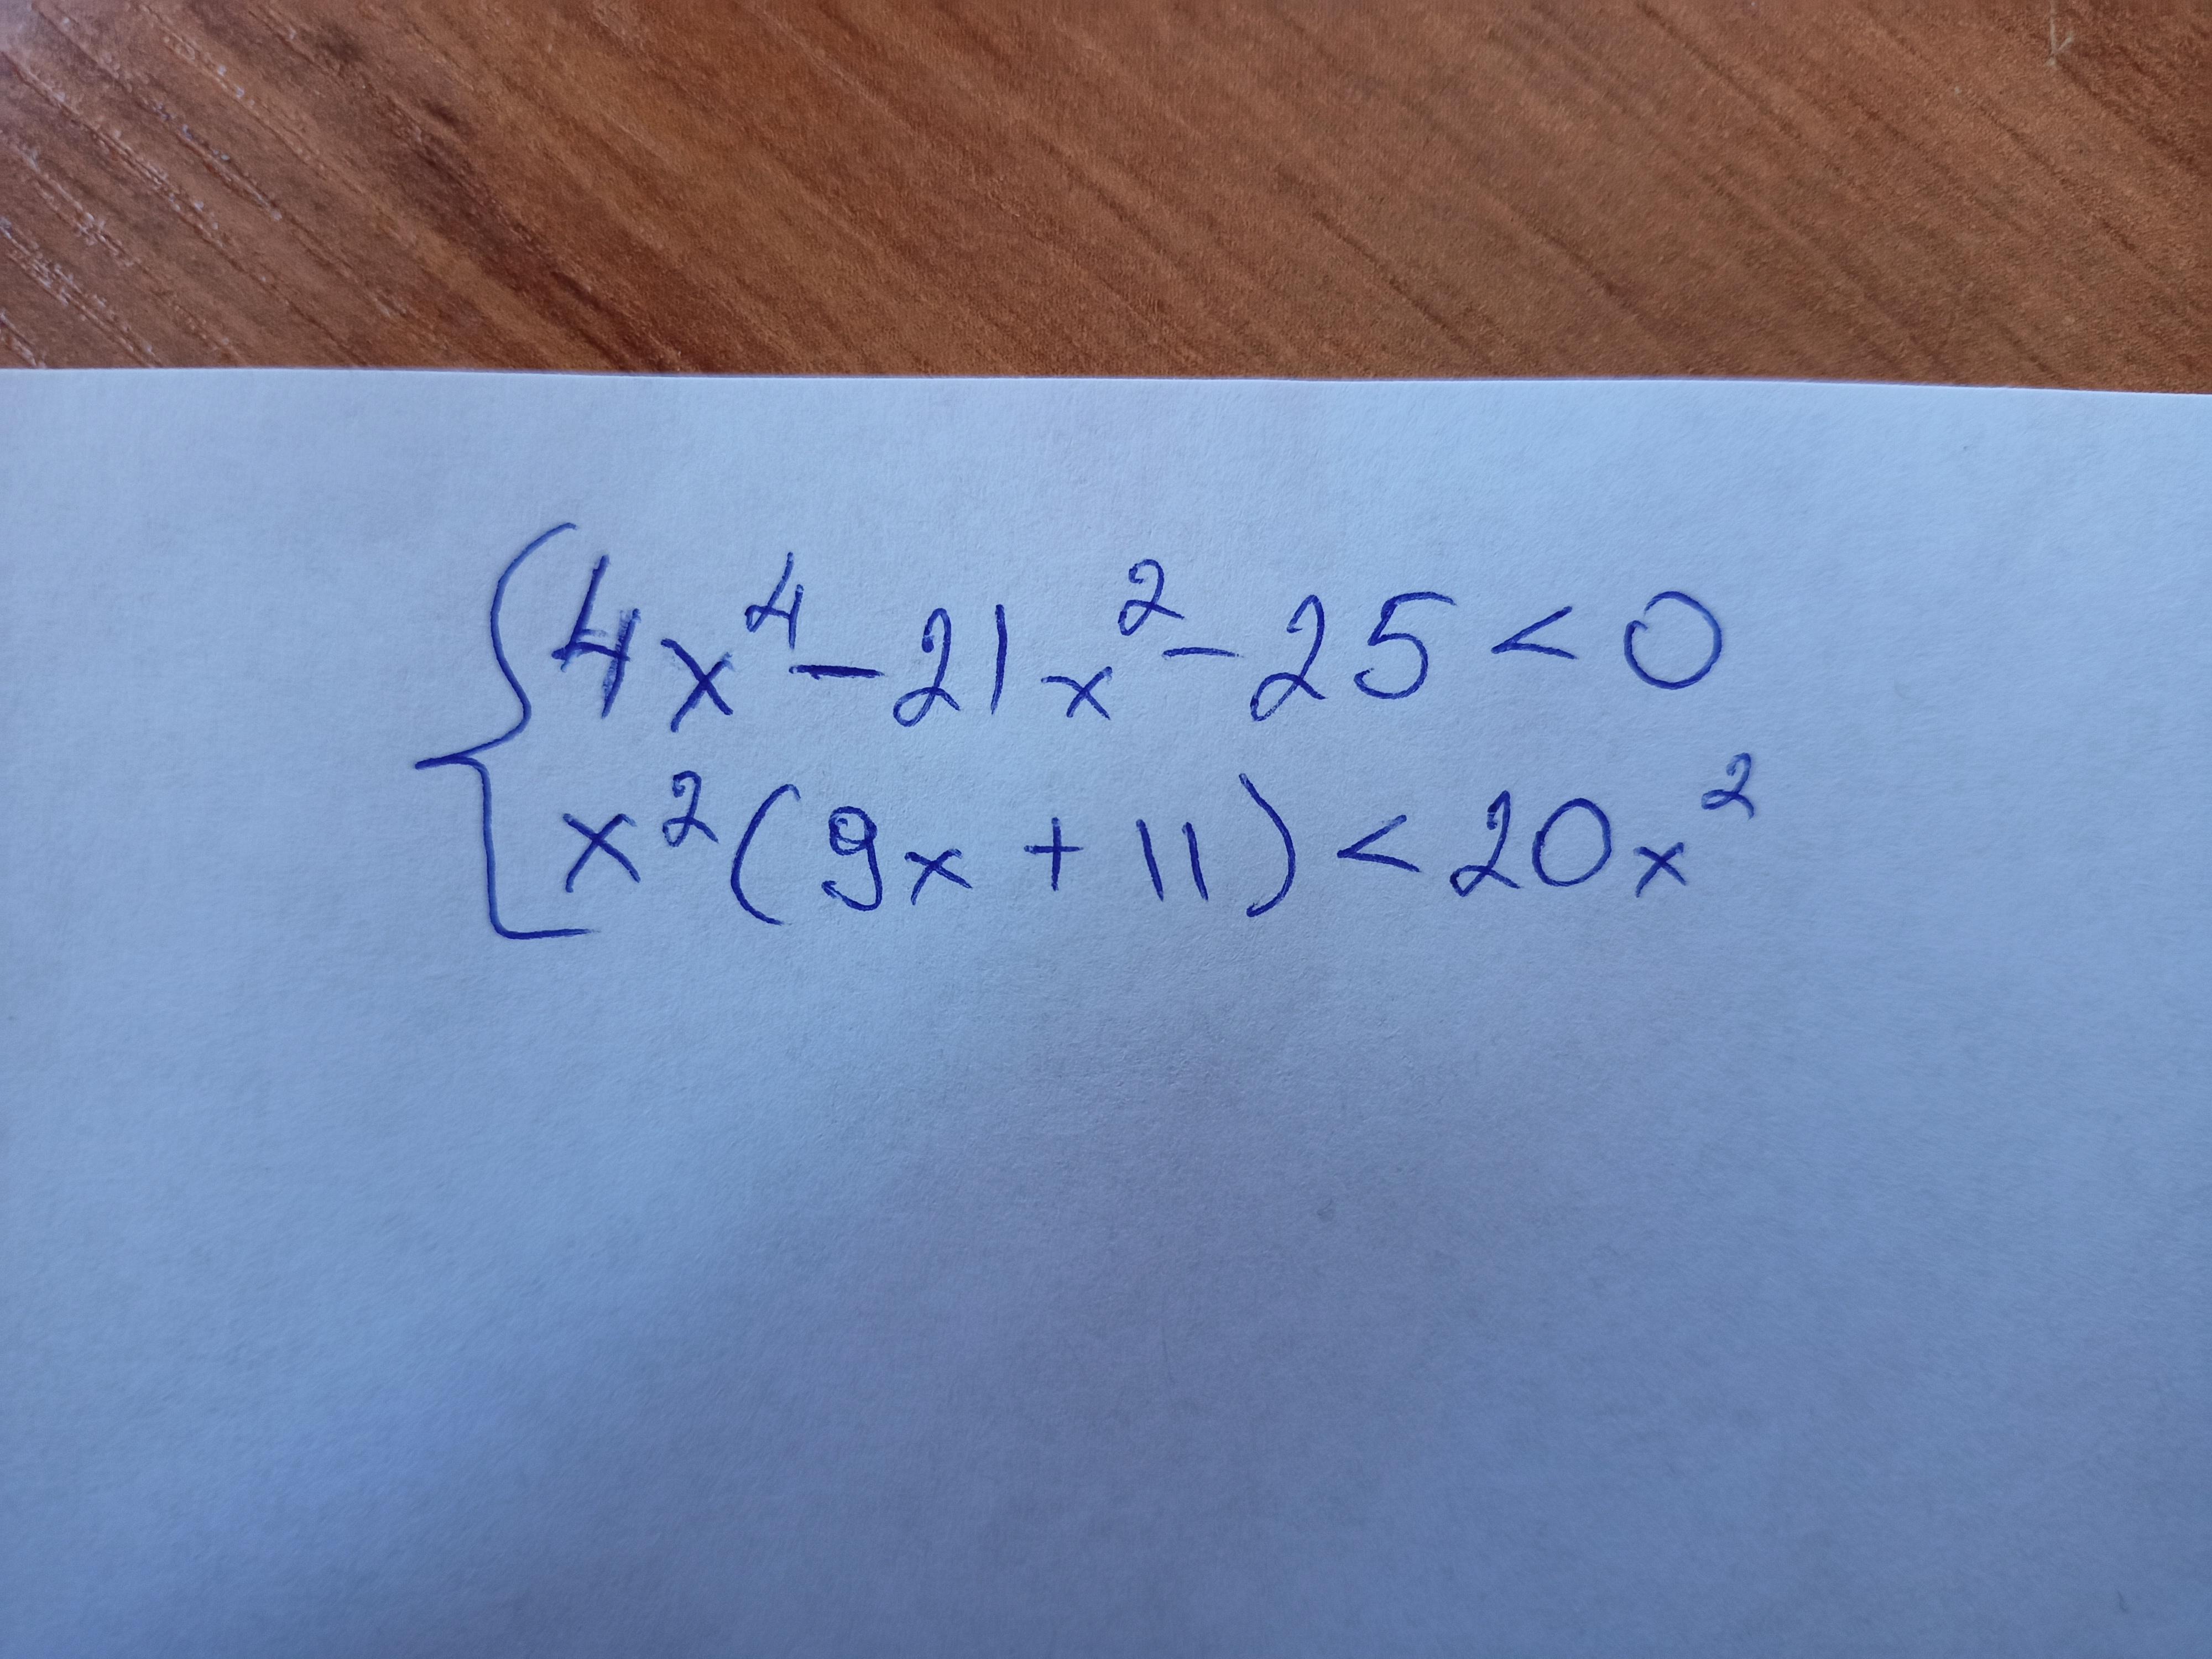 {4x⁴-21x²-25<0
x²(9x+11)<20x²